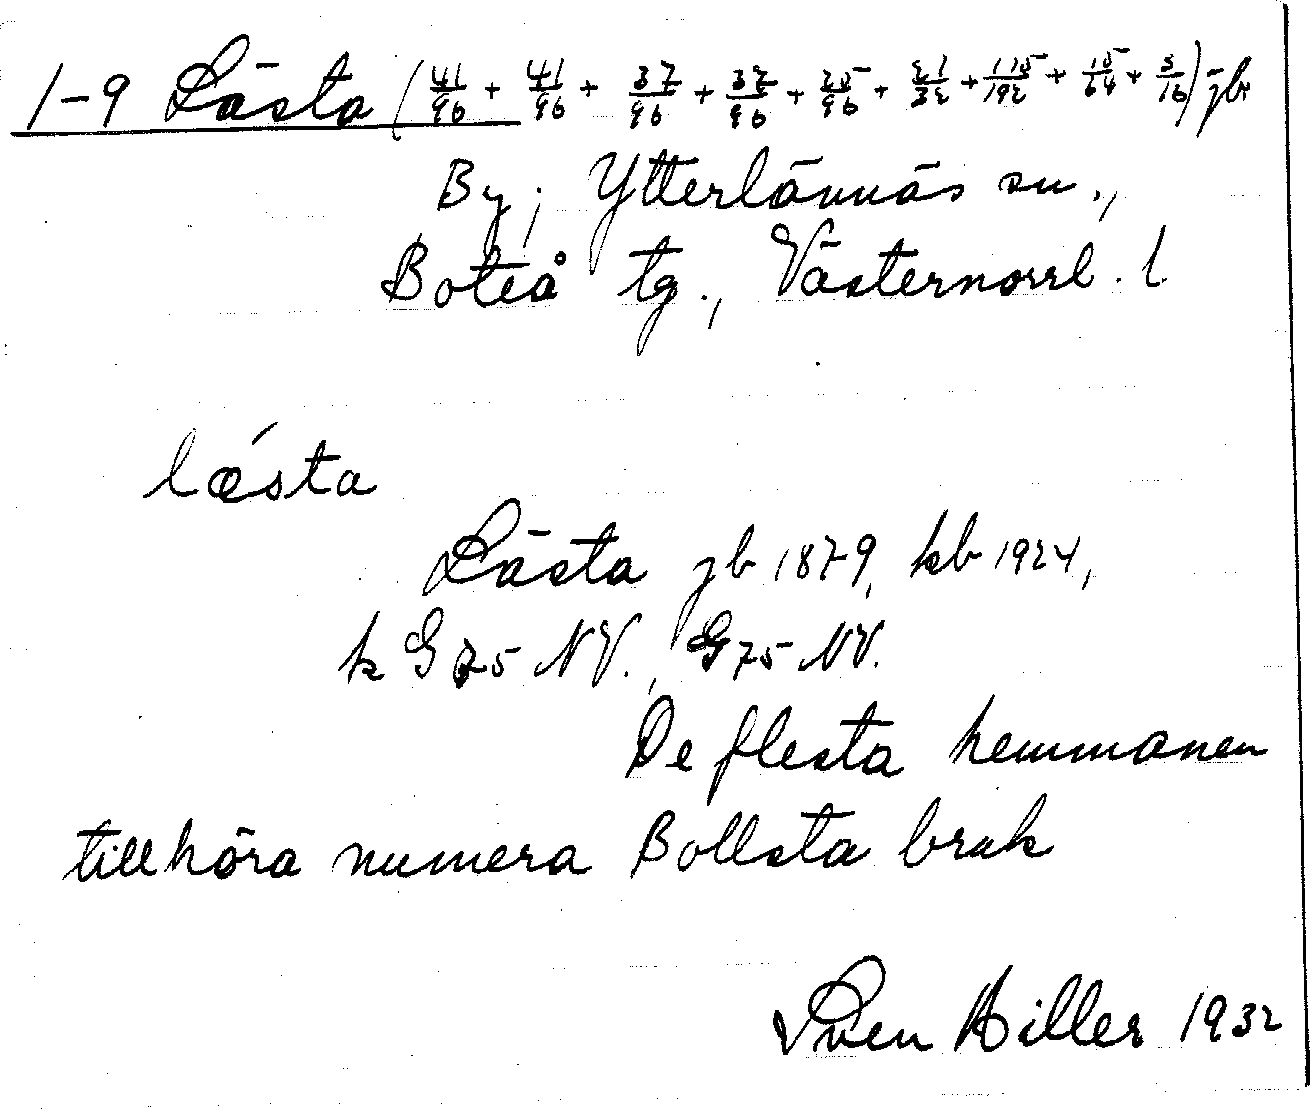 1-9 Lästa (41/96 + 41/96 + 37/96 + 37/96 + 25/96 + 21/32 + 115/192 + 15/64 + 3/16) jbr
By; Ytterlännäs sn.,
Boteå tg., Västernorrl. l
læ´sta
Lästa jb 1879, kb 1924,
k G 75 NV., G 75 NV.
De flesta hemmanen
tillhöra numera Bollsta bruk
Sven Hiller 1932